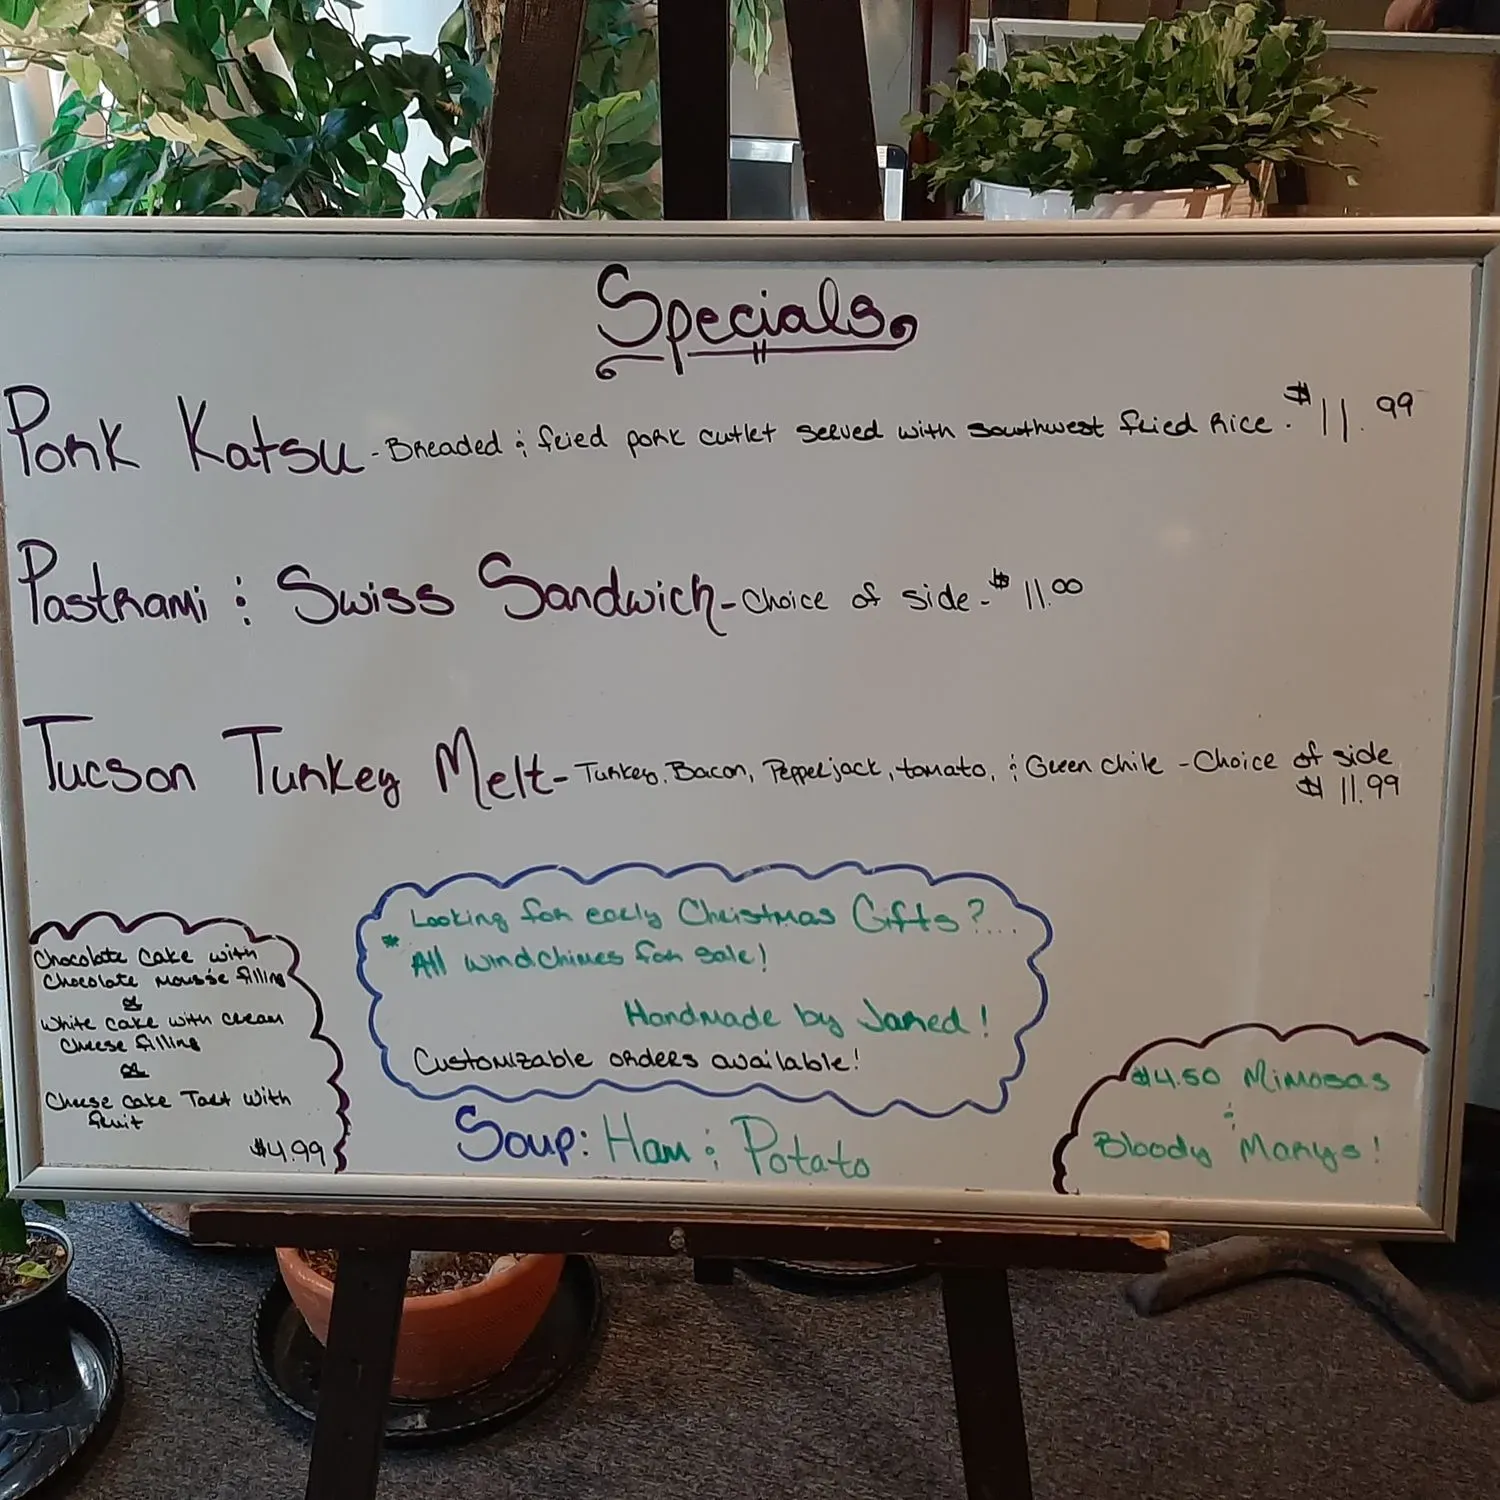 Specials
Pork Katsu - Breaded & fried pork cutlet served with southwest fried rice. $11.99
Pastrami & Swiss Sandwich - Choice of side - $11.00
Tucson Turkey Melt - Turkey, Bacon, Pepperjack, tomato, & Green chile - Choice of side
$11.99
Chocolate Cake with
Chocolate mousse filling
or
White cake with cream
cheese filling
or
Cheese cake Tart with
fruit
$4.99
Looking for early Christmas Gifts?...
* All windchimes for sale!
Handmade by Jared!
Customizable orders available!
Soup: Ham & Potato
$4.50 Mimosas
&
Bloody Marys!